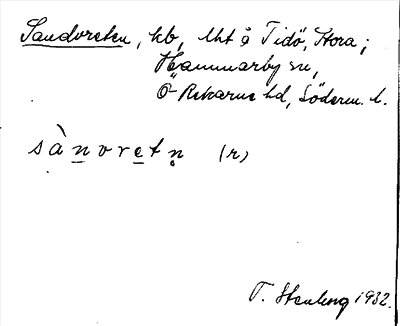 Sandvreten, kb, lht å Tidö, Stora;
Hammarby sn,
Ö Rekarne hd, Söderm. l.
sànvretn (r)
T. Stenberg 1932.